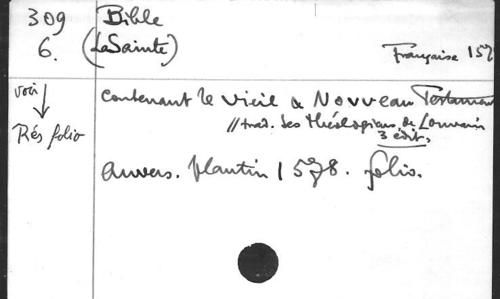 309 Bible
6. (La Sainte)
Française 157
voir
Rés folio
contenant le Vieil & Nouveau Testament
// trad. des théologiens de Louvain
3 édit.
Anvers. Plantin 1578. folio.